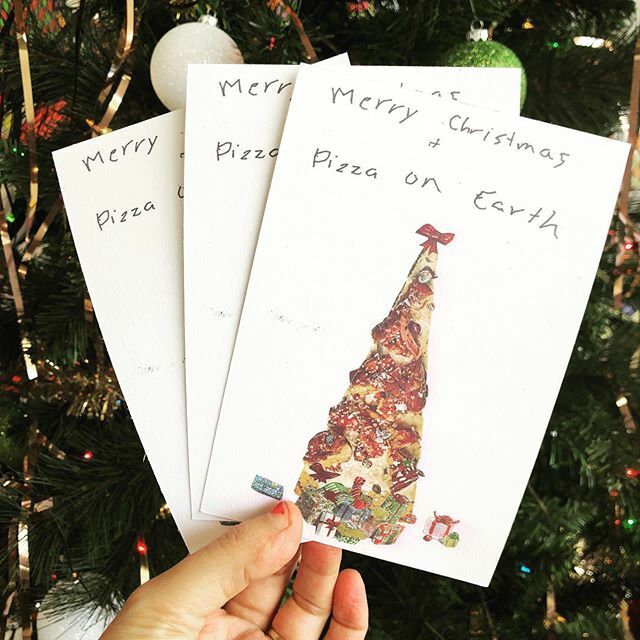 Merry
Pizza
Merry mas
Pizza
Merry Christmas
+
Pizza on Earth